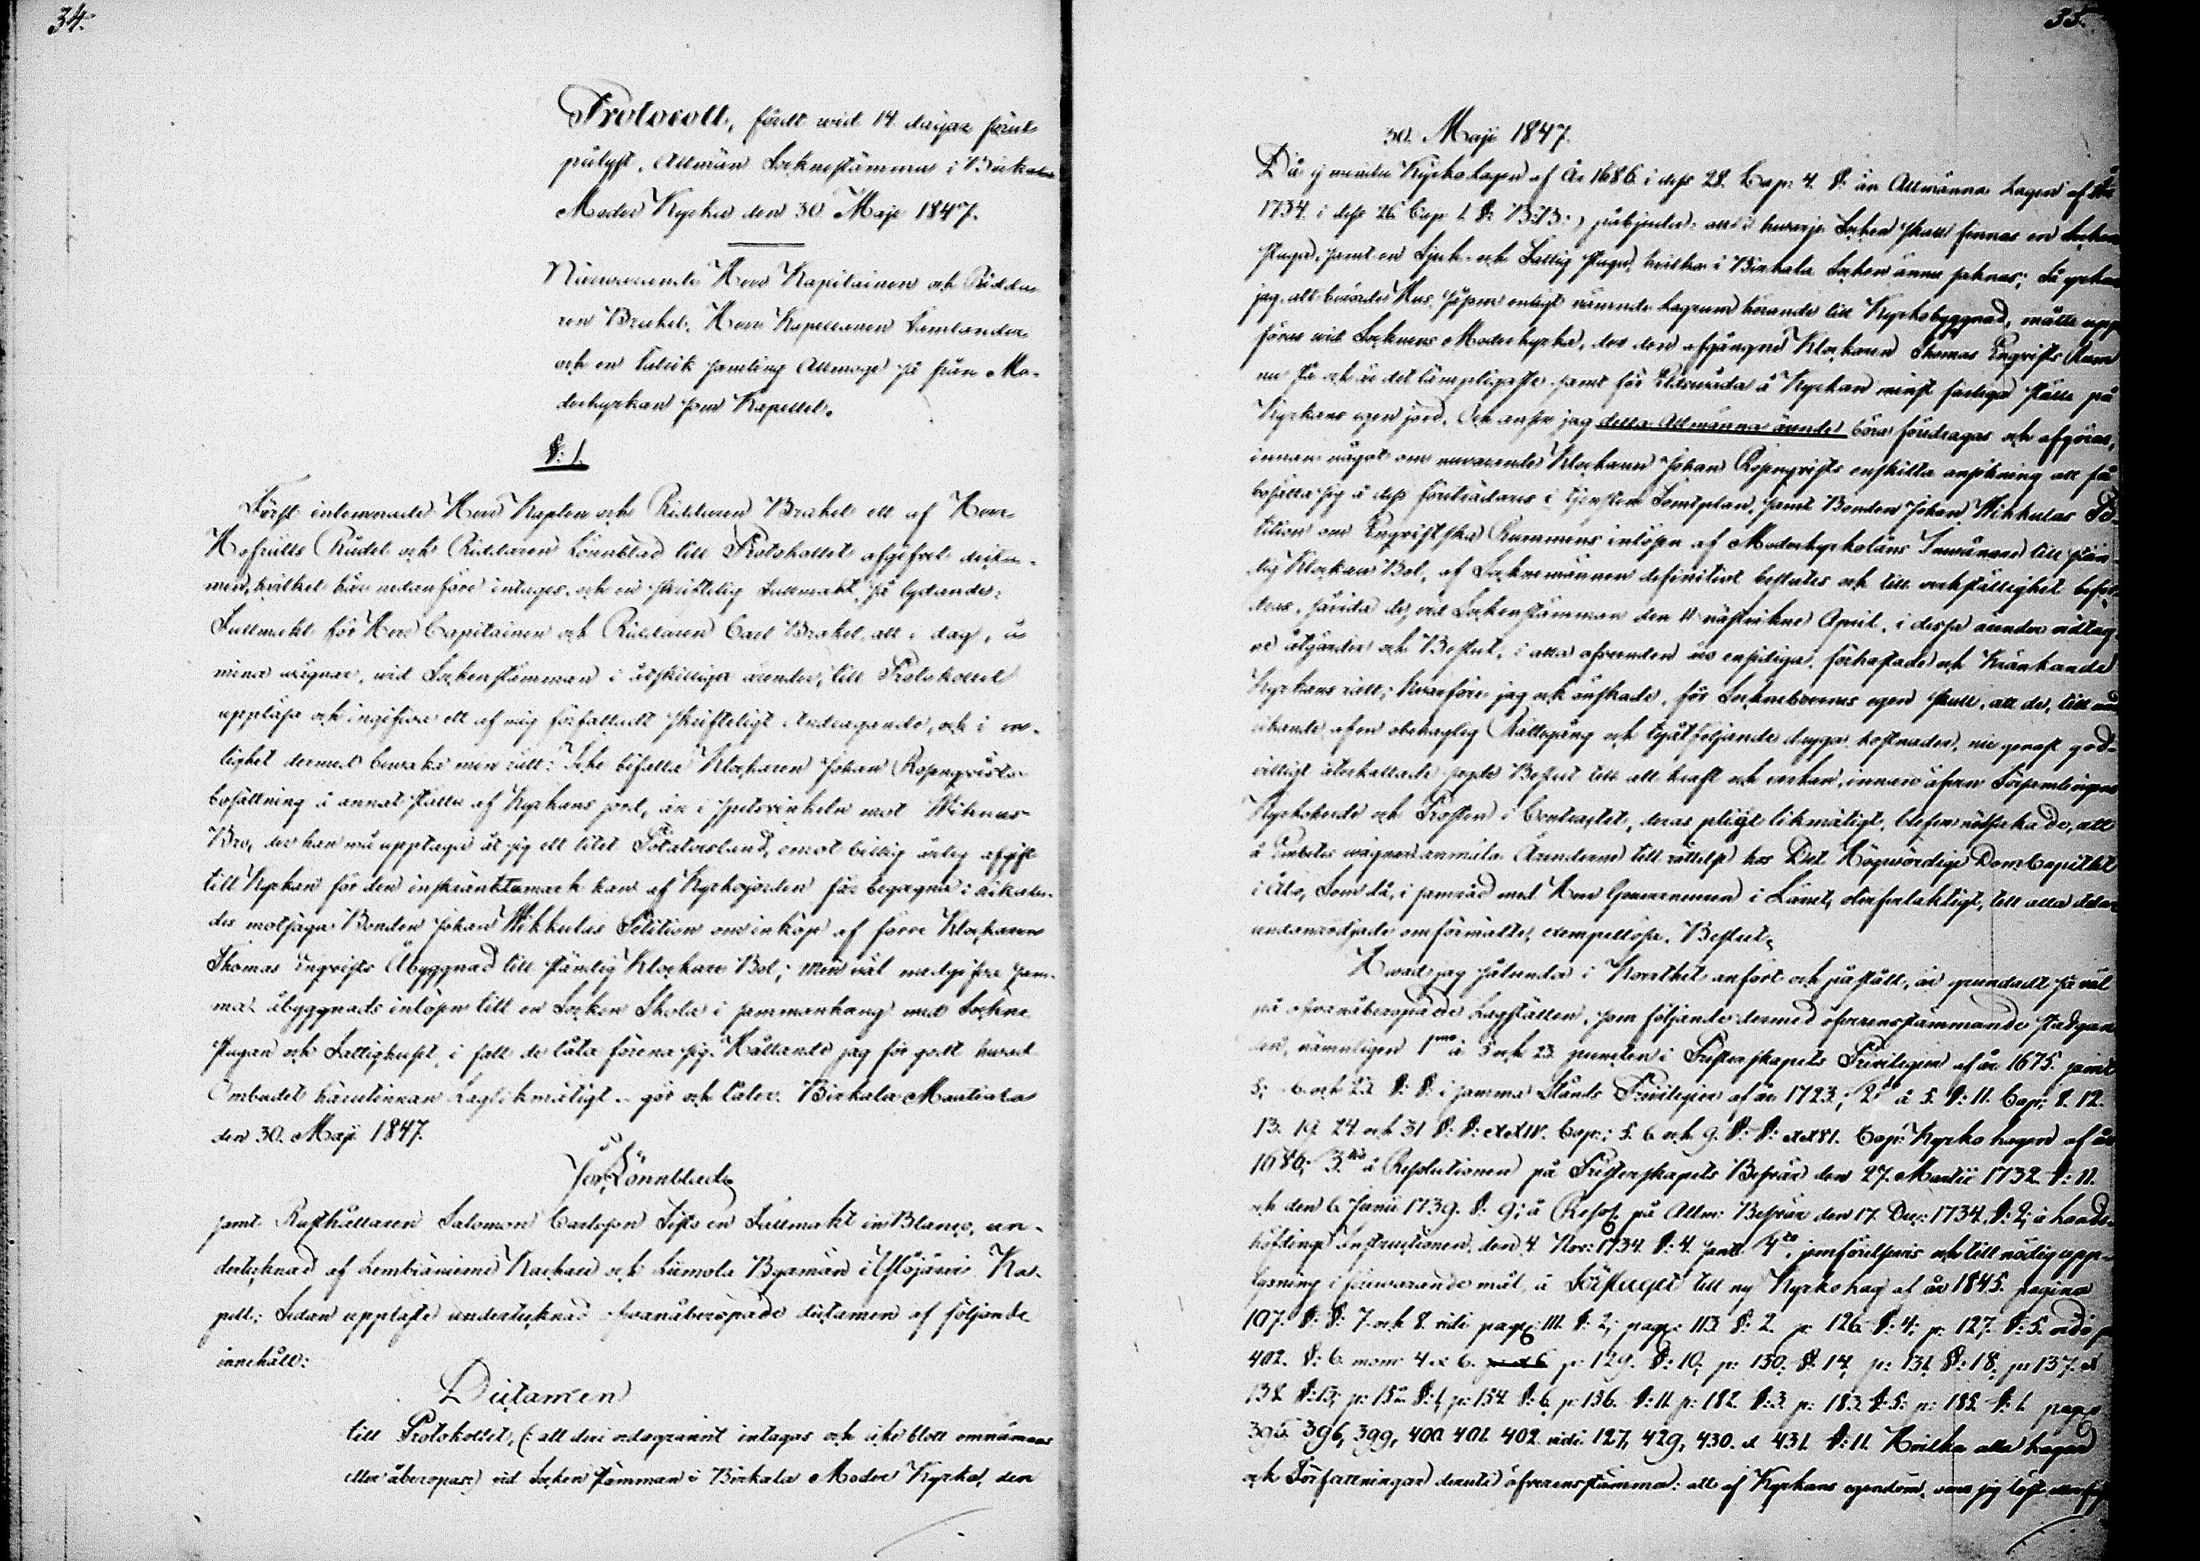 34.
Protocoll, fördt wid 14 dagar förut
pålyst, Allmän Socknestämma i Birkala
Moder Kyrka den 30 Maji 1847.
Närwarande Herr Kapitainen och Ridda-
ren Brakel, Herr Kapellanen
och en talrik samling Allmoge så från Mo-
derkyrkan som Kapellet.
§: 1.
Först inlemnade Herr Kapten och Riddaren Brakel ett af Herr
Hofrätts Rådet och Riddaren Lönnblad till Protokollet afgifvet dicta-
men, hvilket här nedanföre intages, och en skriftelig fullmakt, så lydande:
Fullmakt för Herr Capitainen och Riddaren Carl Brakel, att i dag, å
mina wägnar, wid Sockenstämman i åtskilliga ärender, till Protokollet
uppläsa och ingifva ett af mig författadt skrifteligt Andragande, och i en-
lighet dermed bewaka min rätt: Icke bifalla Klockaren Johan Rosenqvists
bosättning å annat ställe af Kyrkans jord, än i spetsvinkeln mot
Bro, der han må upptaga åt sig ett litet Potatesland, emot billig årlig afgift
till Kyrkan för den inskränkta mark han af Kyrkojorden får begagna; äfvenle-
des motsäga Bonden Johan Mikkulas Petition om inköp af förre Klockaren
Thomas Enqvists Åbyggnad till ständig Klockare Bol; men väl medgifva sam-
ma åbyggnads inlösen till en Socken Skola i sammanhang med Sockne
stugan och Fattighuset, i fall de låta förena sig. Hållande jag för godt hwad
Ombudet härutinnan Laglikmätigt gör och låter. Birkala Maatiala
den 30. Maji 1847.
Lönnblad
samt Rusthållaren Salomon Carlsson Sifto en Fullmakt in Blanco, un-
dertecknad af Lembiäniemi Kackari och Liimola Byamän i Ylöjärvi Ka-
pell; Sedan upplästes undertecknad ofvanåberopade dictamen af följande
innehåll:
Dictamen
till Protokollet, (: att deri ordagrannt intagas och icke blott omnämnas
eller åberopas) vid Sockenstämman i Birkala Moder Kyrka, den
35.
30. Maji 1847.
Då ej mindre Kyrko Lagen af År 1686 i dess 28. Cap: 4. §. än Allmänna Lagen af År
1734. i dess 26 Cap. 1. §: B:B:, påbjuder, att i hwarje Socken skall finnas en Socken
stuga, samt en Sjuk- och Fattig stuga, hvilka i Birkala Socken ännu saknas; Så yrkar
jag, att berörde Hus, såsom enligt nämnde Lagrum hörande till Kyrkobyggnad, måtte upp-
föras wid Socknens Moderkyrka, der den afgångne Klockaren Thomas Enqvists Rum
nu stå och är det lämpligaste samt för Eldswåda å Kyrkan minst farliga ställe på
Kyrkans egen jord. Och anser jag detta Allmänna ärende böra föredragas och afgöras,
innan något om nuvarande Klockaren Johan Rosenqvists enskilta ansökning att få
bosätta sig å dess företrädares i tjensten Tomtplan, samt Bonden Johan Mikkulas Pe-
tition om Enqvistska Rummens inlösen af Moderkyrkolens Invånare till stän-
dig Klockare Bol, af Sockenemännen definitivt beslutes och till verkställighet beford-
ras, såvida de, vid Sockenstämman den 11 nästvikne April, i dessa ärender vidtag-
ne åtgärder och Beslut, i alla afseenden äro ensidiga, förhastade och kränkande
Kyrkans rätt; hvarföre jag ock önskade, för Sockneboernes egen skull, att de, till und-
vikande af en obehaglig Rättegång och tyåtföljande dryga kostnader, nu genast god-
villigt återkallade sagde Beslut till all kraft och verkan, innan äfven Församlingens
Kyrkoherde och Prosten i Contractet, deras pligt likmätigt, blefvo nödsakade, att
å Embetes wägnar anmäla Ärenderne till rättelse hos Det Högwördige Dom Capitlet
i Åbo, Som då, i samråd med Herr Gouverneuren i Länet,
undanrödjade omförmälte, exempellösa, Beslut.
Hwad jag sålunda i Korthet anfört och påstått, är grundadt så väl
på ofvanåberopade Lagställen, som följande dermed öfverensstämmande stadgan-
den, nämnligen 1mo å 3 och 23. puncten i Presterskapets Privilegier af år 1675. samt
5; 6. och 23. §. §. i samma Stånds Privilegier af år 1723.; 2do å 5. §: 11. Cap; §. 12.
13. 19. 24 och 31 §: §: XXIV. Cap:; 5. 6. och 9. §: §: XXVI. Cap: Kyrko Lagen af år
1686; 3tio å Resolutionen på Presterskapets Besvär den 27. Martii 1732. §: 11.
och den 6 Junii 1739. §. 9; å Resol. på Allm: Besvär den 17. Dec: 1734. §: 2; å Lands-
höfdinge Instructionen, den 4. Nov: 1734. §: 4. samt 4to, jemförelsevis och till nödig upp-
lysning i förevarande mål, å Förslaget till ny Kyrko Lag af år 1845. pagina
107. §: §: 7. och 8. vidi pag: 111. §: 2; pag: 113. §: 2. p. 126. §: 4; p: 127. §: 5. vidi p
402. §: 6. mom: 4 et 6. p: 129. §: 10; p: 130. §. 14. p: 131. §: 18. p: 137. et
138. §: 13; p: 152. §: 1; p: 154. §: 6. p: 156. §: 11. p: 182. §: 3. p: 183. §: 5: p: 185. §: 1. pag:
395. 396, 399, 400. 401. 402. vidi. 127, 429, 430. et 431. §: 11. Hvilka alla Lagar
och Författningar deruti öfverensstämma: att af Kyrkans egendom, vare sig löst